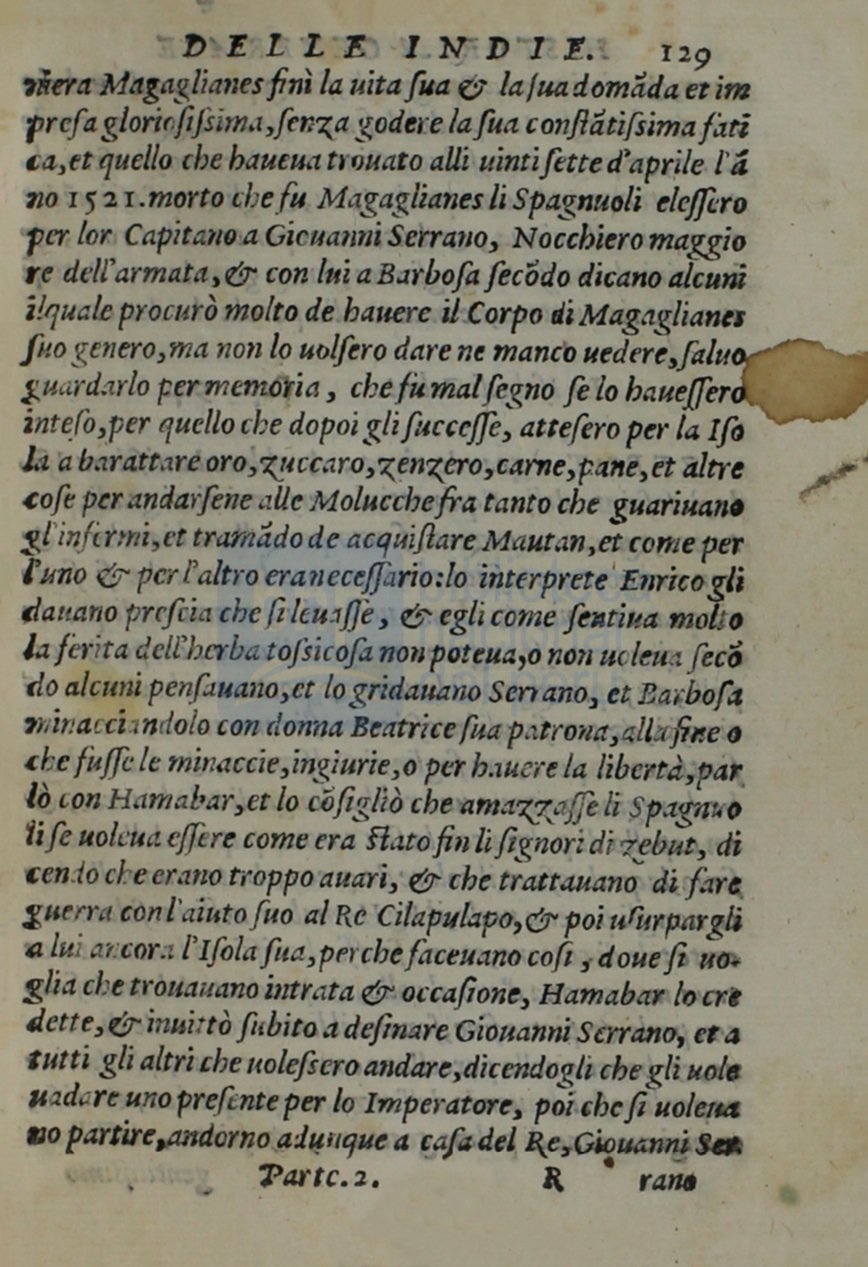 DELLE INDIE. 129
mẽra Magaglianes finì la uita ſua & la ſua domãda et im
preſa glorioſiſsima, ſenza godere la ſua conſtãtiſsima fati
ca, et quello che haueua trouato alli uinti ſette d'aprile l'ã
no 1521. morto che fu Magaglianes li Spagnuoli eleſſero
per lor Capitano a Giouanni Serrano, Nocchiero maggio
re dell'armata, & con lui a Barboſa ſecõdo dicano alcuni
ilquale procurò molto de hauere il Corpo di Magaglianes
ſuo genero, ma non lo uolſero dare ne manco uedere, ſaluo
guardarlo per memoria, che fu mal ſegno ſe lo haueſſero
inteſo, per quello che dopoi gli ſucceſſe, atteſero per la Iſo
la a barattare oro, zuccaro, zenzero, carne, pane, et altre
coſe per andarſene alle Molucche fra tanto che guariuano
gl'infermi, et tramãdo de acquiſtare Mautan, et come per
l'uno & per l'altro era neceſſario: lo interprete Enrico gli
dauano preſcia che ſi leuaſſe, & egli come ſentiua molto
la ferita dell'herba toſsicoſa non poteua, o non uoleua ſecõ
do alcuni penſauano, et lo gridauano Serrano, et Barboſa
minacciandolo con donna Beatrice ſua patrona, alla fine o
che fuſſe le minaccie, ingiurie, o per hauere la libertà, par
lò con Hamabar, et lo cõſigliò che amazzaſſe li Spagnuo
li ſe uoleua eſſere come era ſtato fin li ſignori di zebut, di
cendo che erano troppo auari, & che trattauano di fare
guerra con l'aiuto ſuo al Re Cilapulapo, & poi uſurpargli
a lui ancora l'Iſola ſua, perche faceuano coſi, doue ſi uo-
glia che trouauano intrata & occaſione, Hamabar lo cre
dette, & inuittò ſubito a deſinare Giouanni Serrano, et a
tutti gli altri che uoleſsero andare, dicendogli che gli uole
ua dare uno preſente per lo Imperatore, poi che ſi uoleua
no partire, andorno adunque a caſa del Re, Giouanni Ser
Parte. 2. R rano